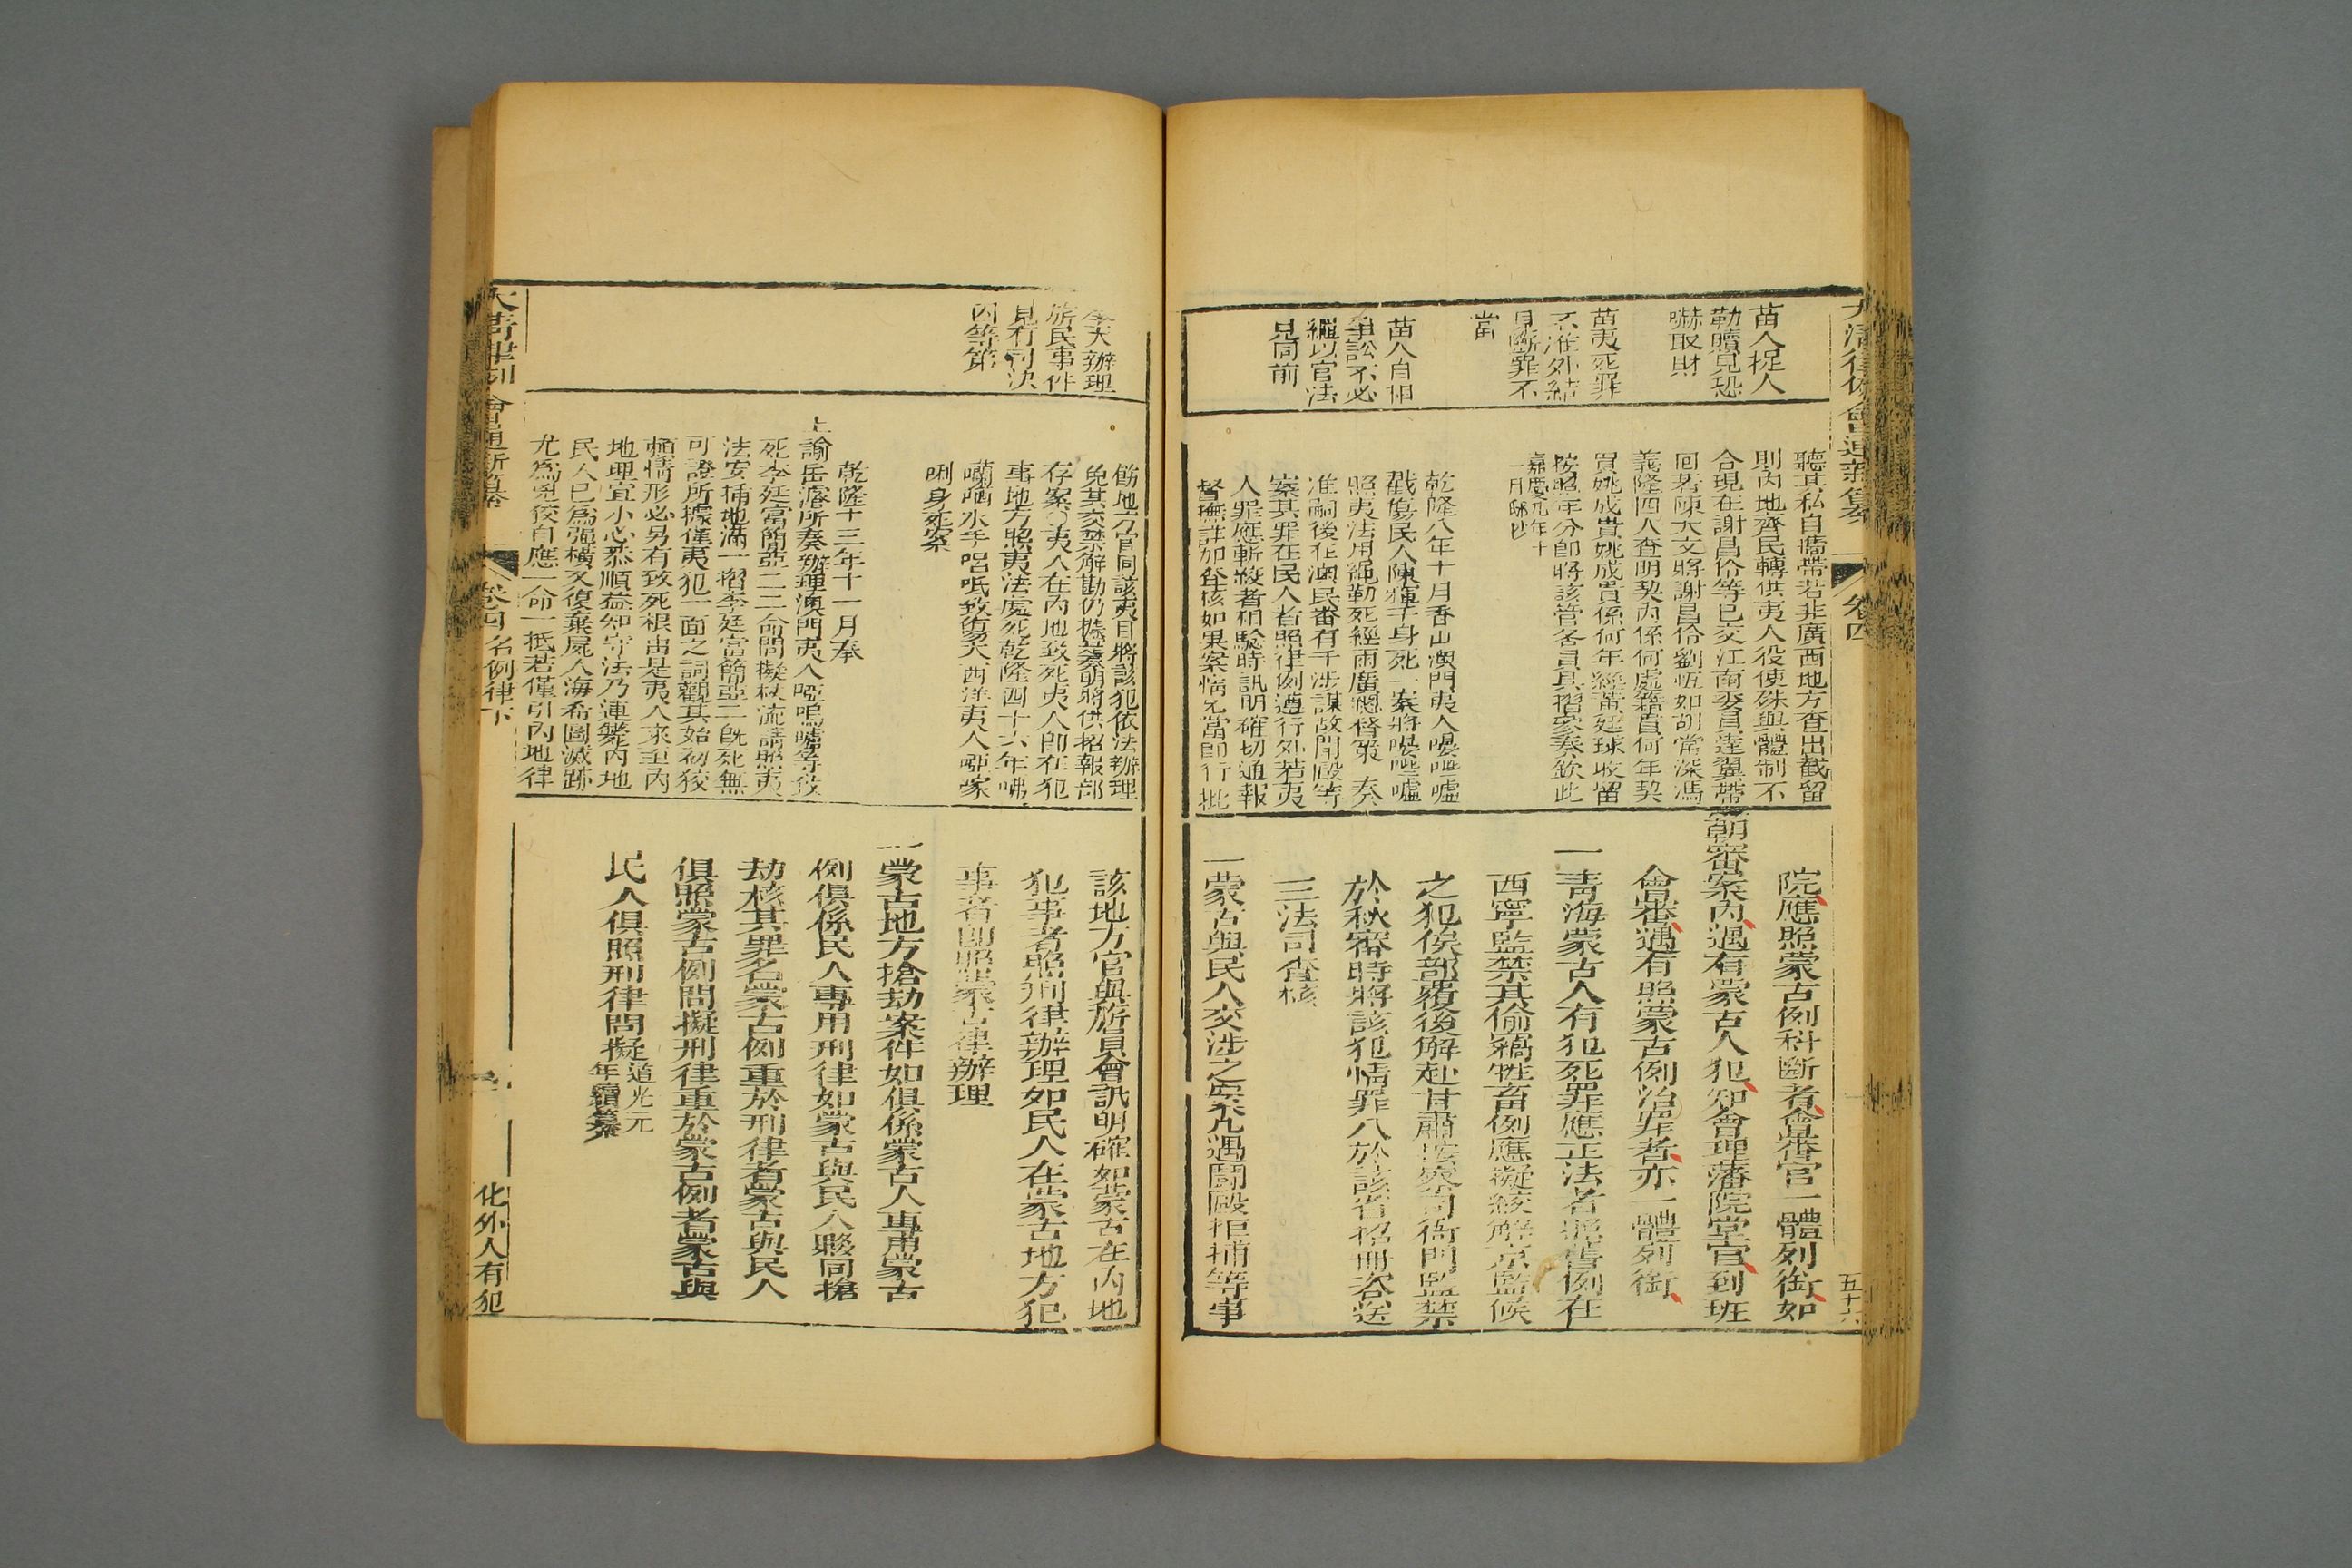 大清律例會通新纂
卷四
五十六
苗人捉人
勒贖見恐
嚇取財
苗夷死罪
不准外結
見斷罪不
當
苗人自相
爭訟不必
繩以官法
見同前
聽其私自攜帶若非廣西地方查出截留
則內地齊民轉供夷人役使殊與體制不
合現在謝昌伶等已交江南委員達翼帶
回著陳大文將謝昌伶劉恆如胡常深馮
義隆四人查明契內係何處籍貫何年契
買姚成貴姚成買係何年經黃廷球收留
按照年分卽將該管各員具摺叅奏欽此
嘉慶九年十
一月邸抄
乾隆八年十月香山澳門夷人
戳傷民人陳輝千身死一案將
照夷法用繩勒死經兩廣總督策 奏
准嗣後在澳民番有干涉謀故鬪毆等
案其罪在民人者照律例遵行外若夷
人罪應斬絞者相驗時訊明確切通報
督撫詳加查核如果案情允當卽行批
院應照蒙古例科斷者會審官一體列銜如
朝審案內遇有蒙古人犯知會理藩院堂官到班
會審遇有照蒙古例治罪者亦一體列銜
一青海蒙古人有犯死罪應正法者照舊例在
西寧監禁其偷竊牲畜例應擬絞解京監候
之犯俟部覆後解赴甘肅按察司衙門監禁
於秋審時將該犯情罪入於該省招冊咨送
三法司查核
一蒙古與民人交涉之案凡遇鬪毆拒捕等事
奉天辦理
旂民事件
見有司決
囚等第
飭地方官同該夷目將該犯依法辦理
免其交禁解勘仍據案明將供招報部
存案 夷人在內地致死夷人卽在犯
事地方照夷法處死乾隆四十六年咈
囒哂水手呂呧致傷大西洋夷人
唎身死案
乾隆十三年十一月奉
上諭岳濬所奏辦理澳門夷人啞嗎嚧等致
死李廷富簡亞二二命問擬杖流請照夷
法安插地滿一摺李廷富簡亞二旣死無
可證所據僅夷犯一面之詞觀其始初狡
賴情形必另有致死根由是夷人來至內
地理宜小心恭順益知守法乃連斃內地
民人已為強橫又復棄屍人海希圖滅跡
尤為兇狡自應一命一抵若僅引內地律
該地方官與旂員會訊明確如蒙古在內地
犯事者照刑律辦理如民人在蒙古地方犯
事者卽照蒙古律辦理
一蒙古地方搶劫案件如俱係蒙古人專用蒙古
例俱係民人專用刑律如蒙古與民人夥同搶
劫核其罪名蒙古例重於刑律者蒙古與民人
俱照蒙古例問擬刑律重於蒙古例者蒙古與
民人俱照刑律問擬
道光元
年續纂
大清律例會通新纂
卷四名例律下
化外人有犯